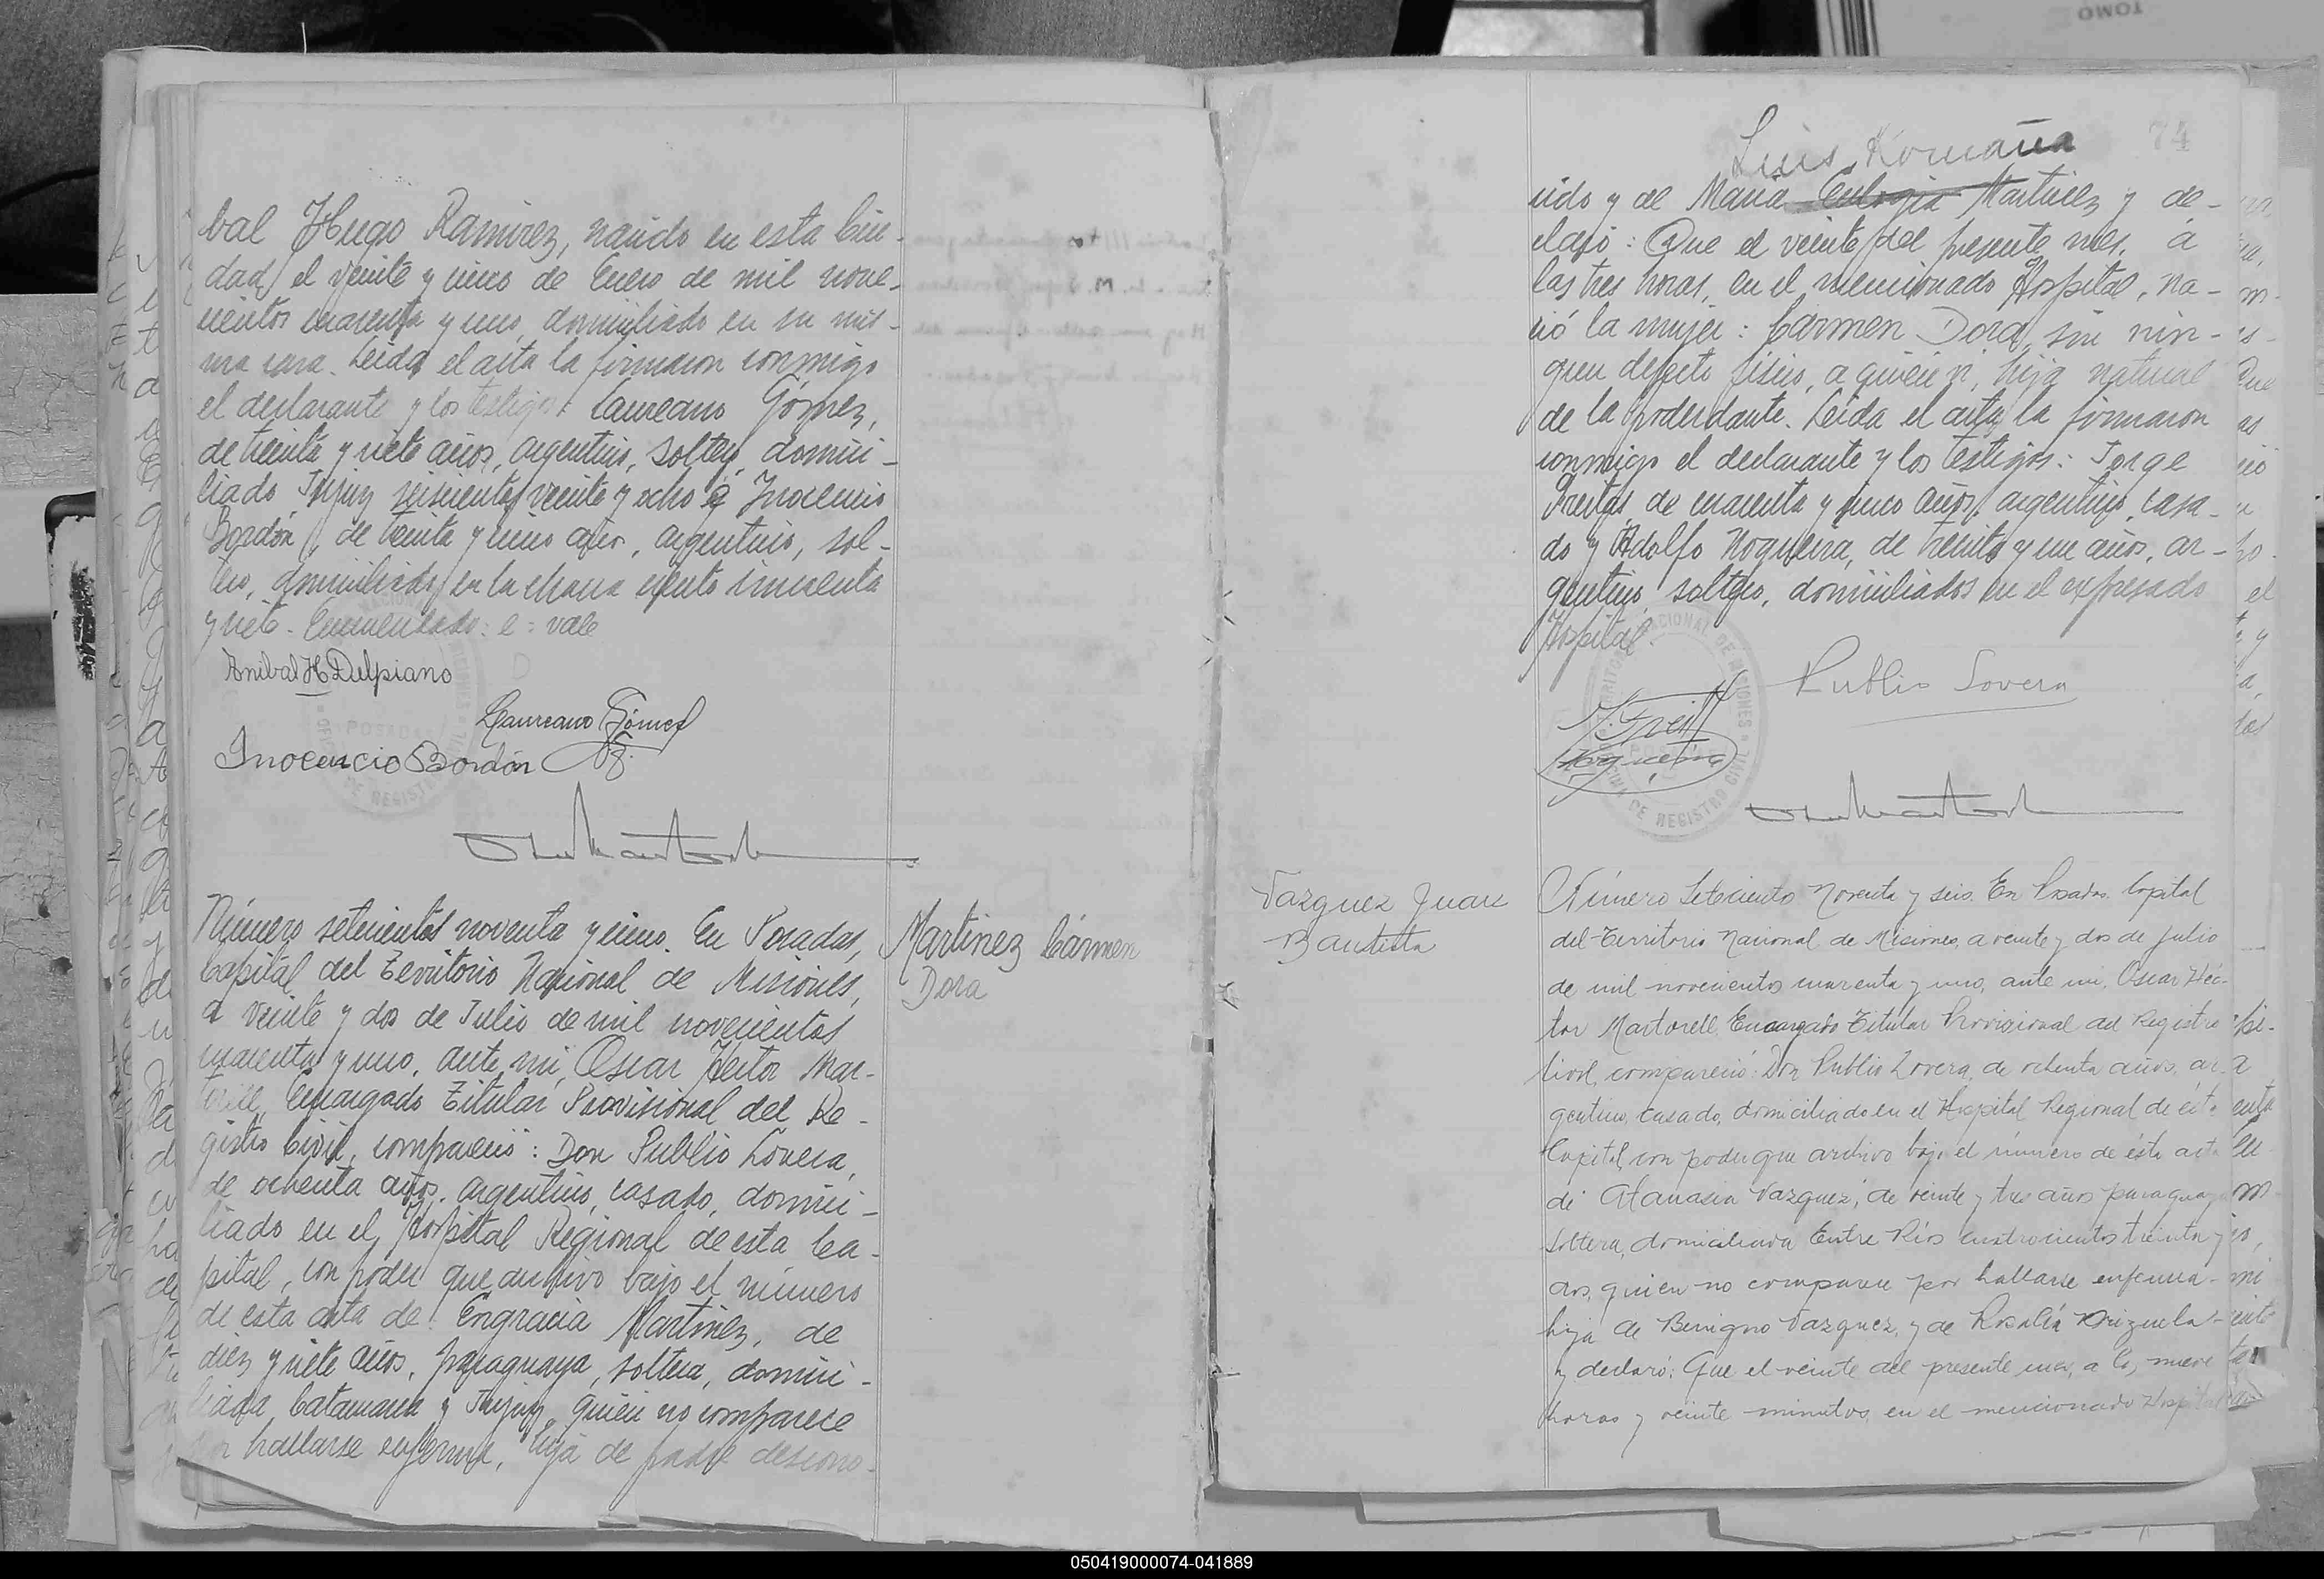 bal Hugo Ramirez, nacido en esta Ciu-
dad el veinte y cinco de Enero de mil nove-
cientos cuarenta y uno, domiciliado en su mis-
ma casa. Leida el acta la firmaron conmigo
el declarante y los testigos: Laureano Gómez,
de treinta y siete años, argentino, soltero, domici-
liado Jujuy seiscientos veinte y ocho é Inocencio
Bordón, de treinta y cinco años, argentino, sol-
tero, domiciliado en la chacra ciento cincuenta
y siete. Enmendado: e = vale
Anibal H Delpiano
Laureano Gómez
Inocencio Bordón
Número setecientos noventa y cinco. En Posadas,
Capital del Territorio Nacional de Misiones,
a veinte y dos de Julio de mil novecientos
cuarenta y uno, ante mi, Oscar Hector Mar-
torell, Encargado Titular Provisional del Re-
gistro Civil, compareció: Don Publio Lovera,
de ochenta años, argentino, casado, domici-
liado en el Hospital Regional de esta Ca-
pital, con poder que archivo bajo el número
de esta acta de Engracia Martinez, de
diez y siete años, paraguaya, soltera, domici-
liada Catamarca y Jujuy, quien no comparece
por hallarse enferma, hija de padre descono-
Martinez Cármen
Dora
74
Luis Romaña
cido y de Maria Eulogia Martinez y de-
claró: Que el veinte del presente mes, a
las tres horas, en el mencionado Hospital, na-
ció la mujer: Cármen Dora, sin nin-
gun defecto fisico, a quien vi, hija natural
de la poderdante. Leida el acta la firmaron
conmigo el declarante y los testigos: Jorge
Freitas de cuarenta y cinco años, argentino, casa-
do y Adolfo Nogueira, de treinta y un años, ar-
gentino, soltero, domiciliados en el expresado
Hospital.
Publio Lovera
J. Freit
Nogueira
TERRITORIO NACIONAL DE MISIONES
POSADAS
OFICINA DE REGISTRO CIVIL
Vazquez Juan
Bautista
Número Seteciento Noventa y seis. En Posadas Capital
del Territorio Nacional de Misiones, a veinte y dos de Julio
de mil novecientos cuarenta y uno, ante mi, Oscar Héc-
tor Martorell Encargado Titular Provisional del Registro
Civil, compareció: Don Publio Lovera, de ochenta años, ar-
gentino, casado, domiciliado en el Hospital Regional de ésta
Capital, con poder que archivo bajo el número de ésta acta
de Atanasia Vazquez, de veinte y tres años paraguaya
soltera, domiciliada Entre Ríos cuatrocientos treinta y
dos, quien no comparece por hallarse enferma
hija de Benigno Vazquez, y de Rosalía Brizuela
y declaró: Que el veinte del presente mes, a las nueve
horas y veinte minutos en el mencionado Hospital
TOMO
050419000074-041889